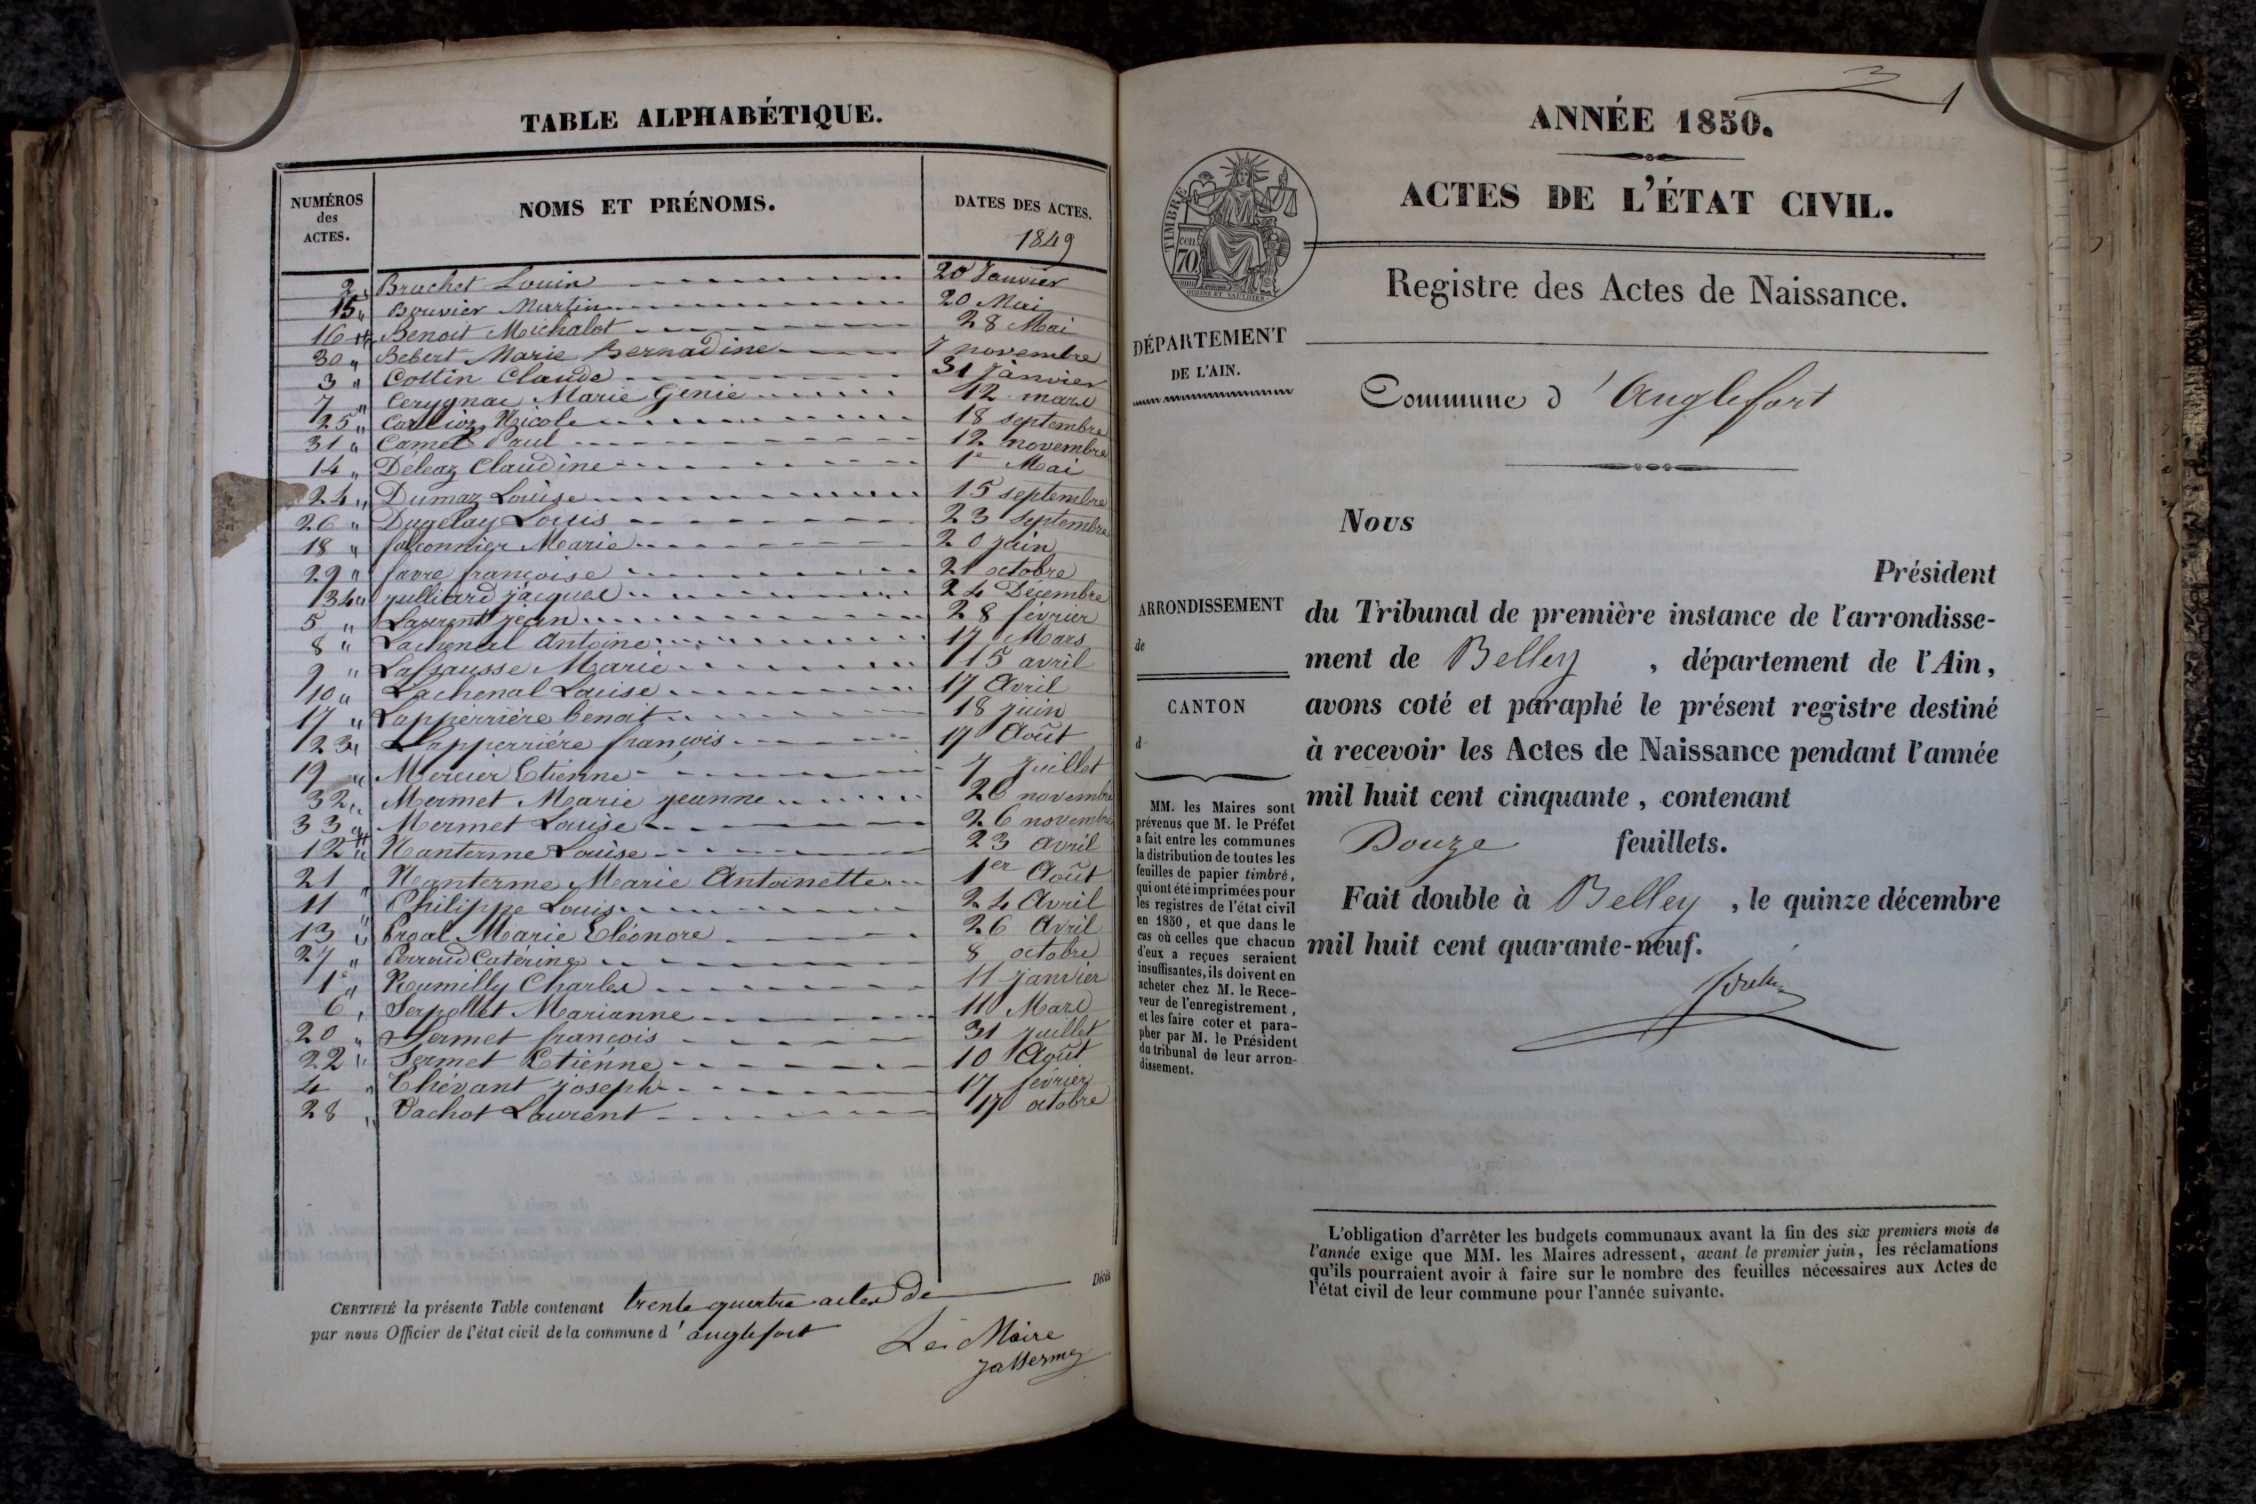 TABLE ALPHABÉTIQUE.
NUMÉROS des ACTES.
NOMS ET PRÉNOMS.
DATES DES ACTES.
1849
2 " Brachet Louis 20 Janvier
15 " Bouvier Martin 20 Mai
16 " Benoit Michalot 28 Mai
30 " Bebert Marie Bernadine 7 novembre
3 " Cottin Claude 31 Janvier
7 " Cerygnac Marie Génie 12 mars
25 " Carlioz Nicole 18 septembre
31 " Camet Paul 12 novembre
14 " Déléaz Claudine 1e Mai
24 " Dumaz Louise 15 septembre
26 " Dugelay Louis 23 septembre
18 " falconnier Marie 20 juin
29 " favre françoise 21 octobre
34 " julliard jacques 24 Décembre
5 " Laurent jean 28 février
8 " Lachenal Antoine 17 Mars
9 " Lafsausse Marie 15 avril
10 " Lachenal Louise 17 Avril
17 " Lapperrière benoit 18 juin
23 " Lapperrière françois 17 Août
19 " Mercier Etienne 7 juillet
32 " Mermet Marie jeanne 26 novembre
33 " Mermet Louise 26 novembre
12 " Nanterme Louise 23 avril
21 " Nanterme Marie Antoinette 1er Août
11 " Philippe Louis 24 Avril
13 " Proal Marie Eléonore 26 Avril
27 " Perroud Catérine 8 octobre
1e " Rumilly Charles 11 janvier
6 " Serpollet Marianne 11 Mars
20 " Sermet françois 31 juillet
22 " Sermet Etiénne 10 Août
4 " Thévant joseph 17 février
28 " Vachot Laurent 17 octobre
CERTIFIÉ la présente Table contenant trente quatre actes de Décès
par nous Officier de l'état civil de la commune d'anglefort
Le Maire
3
1
ANNÉE 1850.
ACTES DE L'ÉTAT CIVIL.
TIMBRE
70
cen
Registre des Actes de Naissance.
DÉPARTEMENT
DE L'AIN.
Commune d'Anglefort
Nous
Président
ARRONDISSEMENT
de
CANTON
d
du Tribunal de première instance de l'arrondisse-
ment de Belley, département de l'Ain,
avons coté et paraphé le présent registre destiné
à recevoir les Actes de Naissance pendant l'année
mil huit cent cinquante, contenant
Douze feuillets.
Fait double à Belley, le quinze décembre
mil huit cent quarante-neuf.
MM. les Maires sont
prévenus que M. le Préfet
a fait entre les communes
la distribution de toutes les
feuilles de papier timbré,
qui ont été imprimées pour
les registres de l'état civil
en 1850, et que dans le
cas où celles que chacun
d'eux a reçues seraient
insuffisantes, ils doivent en
acheter chez M. le Rece-
veur de l'enregistrement,
et les faire coter et para-
pher par M. le Président
du tribunal de leur arron-
dissement.
L'obligation d'arrêter les budgets communaux avant la fin des six premiers mois de
l'année exige que MM. les Maires adressent, avant le premier juin, les réclamations
qu'ils pourraient avoir à faire sur le nombre des feuilles nécessaires aux Actes de
l'état civil de leur commune pour l'année suivante.